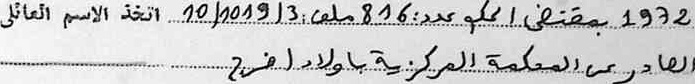 1972 بمقتضى الحكم عدد: 816 ملف: 10/1019/3 اتخذ الاسم العائلي
الصادر عن المحكمة المركزية باولاد افرج